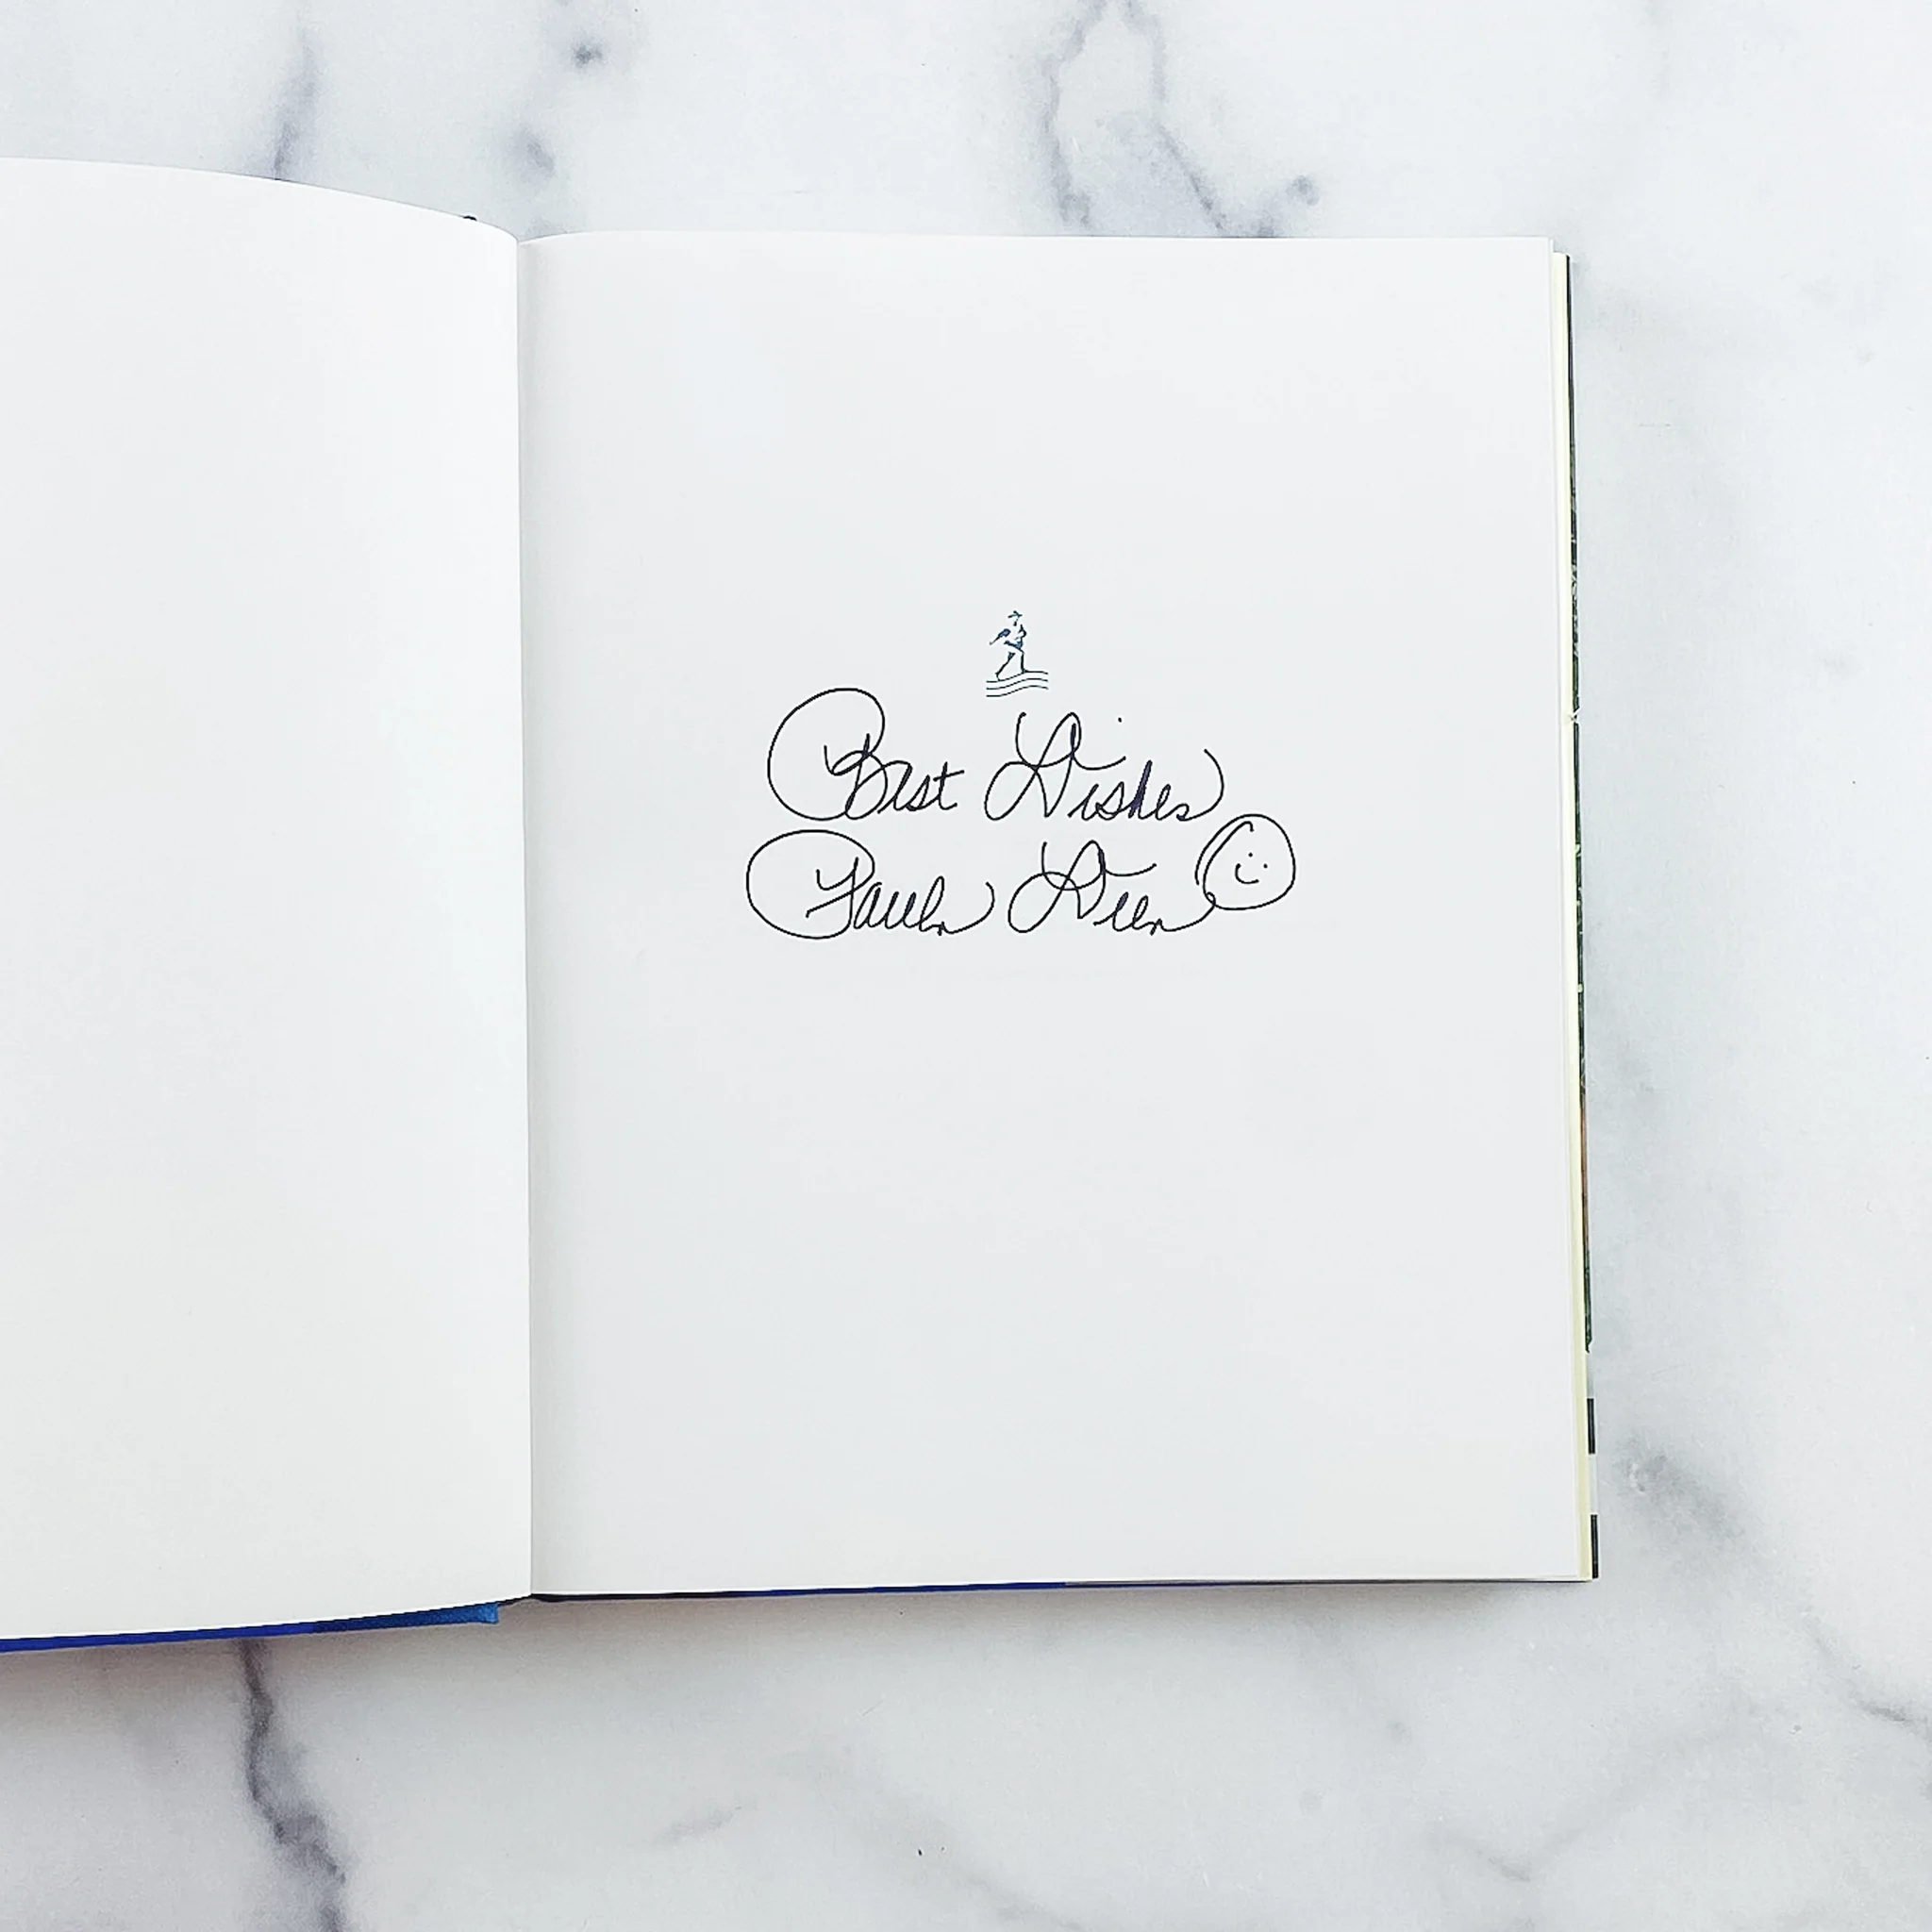 Best Wishes
Paula Deen